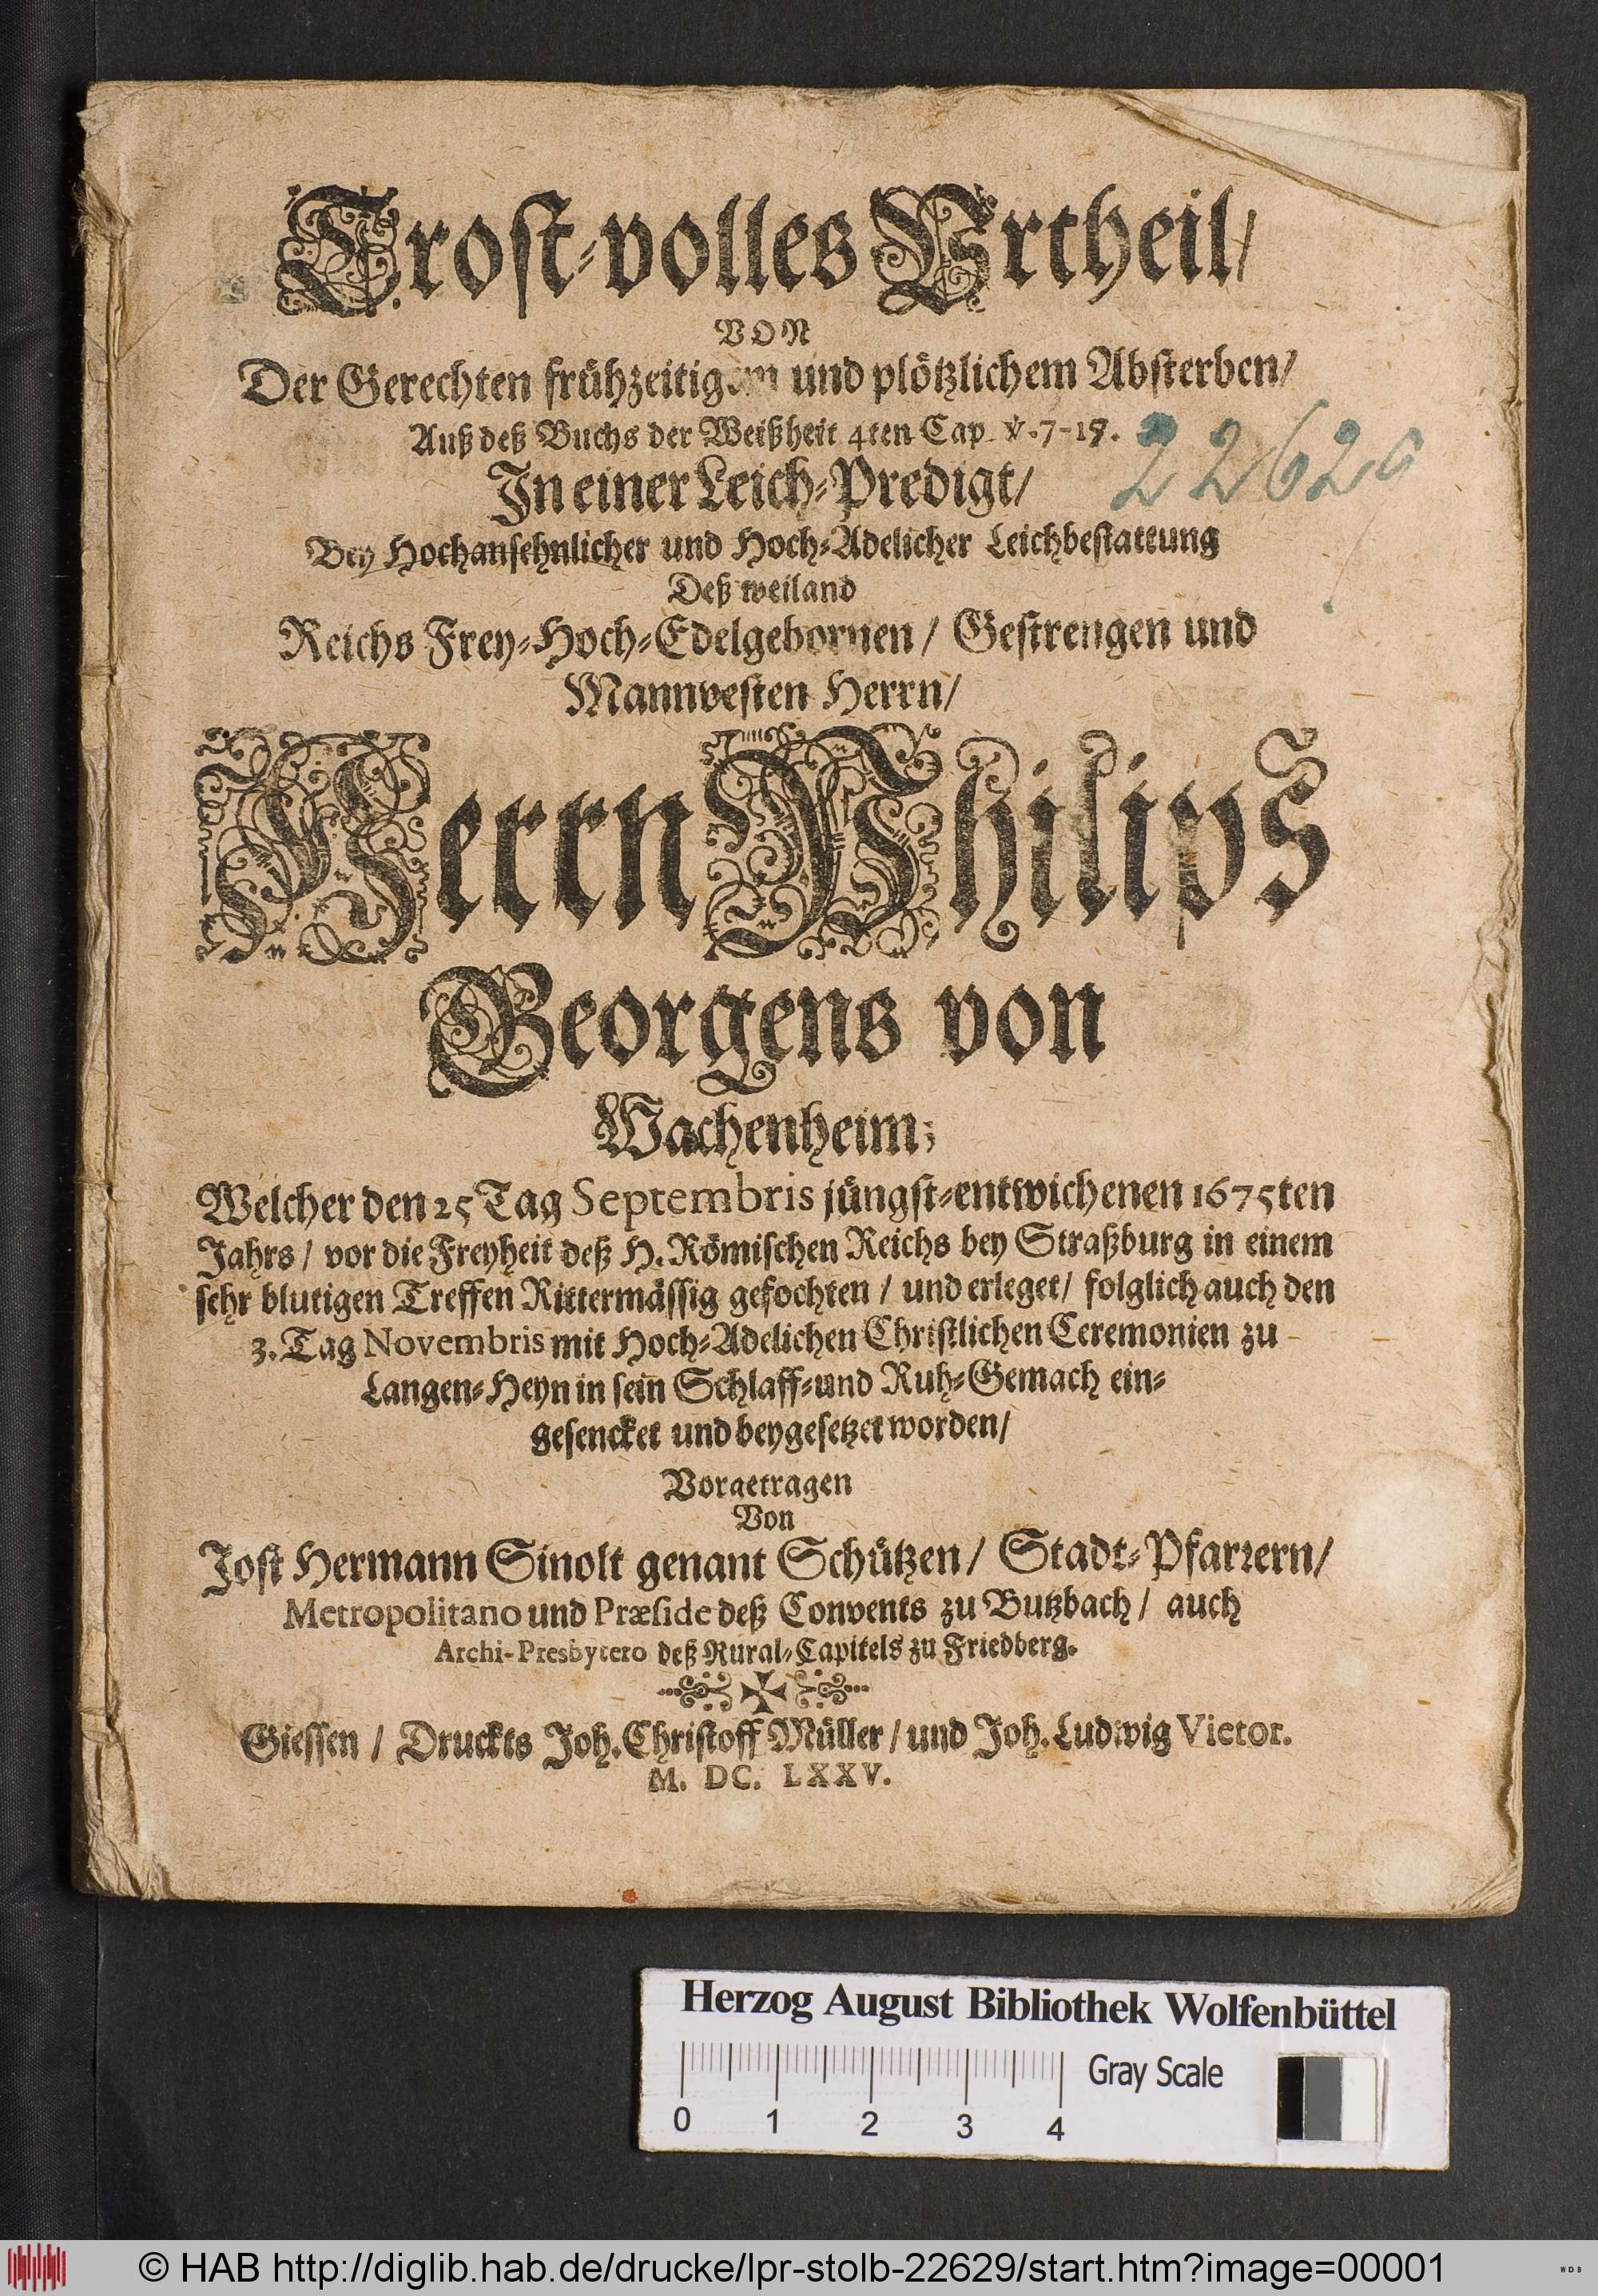 Trost-volles Urtheil/
VON
Der Gerechten frühzeitigem und plötzlichem Absterben/
Auß deß Buchs der Weißheit 4ten Cap. ꝟ.7-15.
In einer Leich-Predigt/
Bey Hochansehnlicher und Hoch-Adelicher Leichbestattung
Deß weiland
Reichs Frey-Hoch-Edelgebornen/ Gestrengen und
Mannvesten Herrn/
Herrn Philips
Georgens von
Wachenheim;
Welcher den 25 Tag Septembris jüngst-entwichenen 1675ten
Jahrs/ vor die Freyheit deß H. Römischen Reichs bey Straßburg in einem
sehr blutigen Treffen Rittermässig gefochten/ und erleget/ folglich auch den
3. Tag Novembris mit Hoch-Adelichen Christlichen Ceremonien zu
Langen-Heyn in sein Schlaff-und Ruh-Gemach ein-
gesencket und beygesetzet worden/
Vorgetragen
Von
Jost Hermann Sinolt genant Schützen/ Stadt-Pfarrern/
Metropolitano und Præside deß Convents zu Butzbach/ auch
Archi-Presbytero deß Rural-Capitels zu Friedberg.
Giessen/ Druckts Joh. Christoff Müller/ und Joh. Ludwig Vietor.
M. DC. LXXV.
Herzog August Bibliothek Wolfenbüttel
Gray Scale
0 1 2 3 4
© HAB http://diglib.hab.de/drucke/lpr-stolb-22629/start.htm?image=00001
WDB